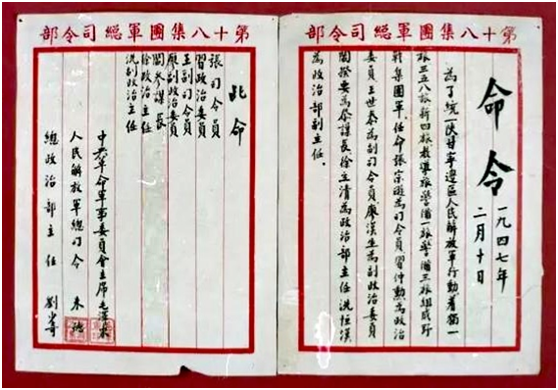 第十八集團軍總司令部
命令
一九四七年
二月十日
為了統一陝甘寧邊區人民解放軍行動，着獨一
旅三五八旅新四旅教導旅警備一旅警備三旅組成野
戰集團軍，任命張宗遜為司令員習仲勳為政治
委員王世泰為副司令員廖漢生為副政治委員
閻揆要為參謀長徐立清為政治部主任冼恒漢
為政治部副主任。
第十八集團軍總司令部
此命
張司令員
習政治委員
王副司令員
廖副政治委員
閻參謀長
徐政治主任
冼副政治主任
中央革命軍事委員會主席毛澤東
人民解放軍總司令 朱德
總政治部主任 劉少奇